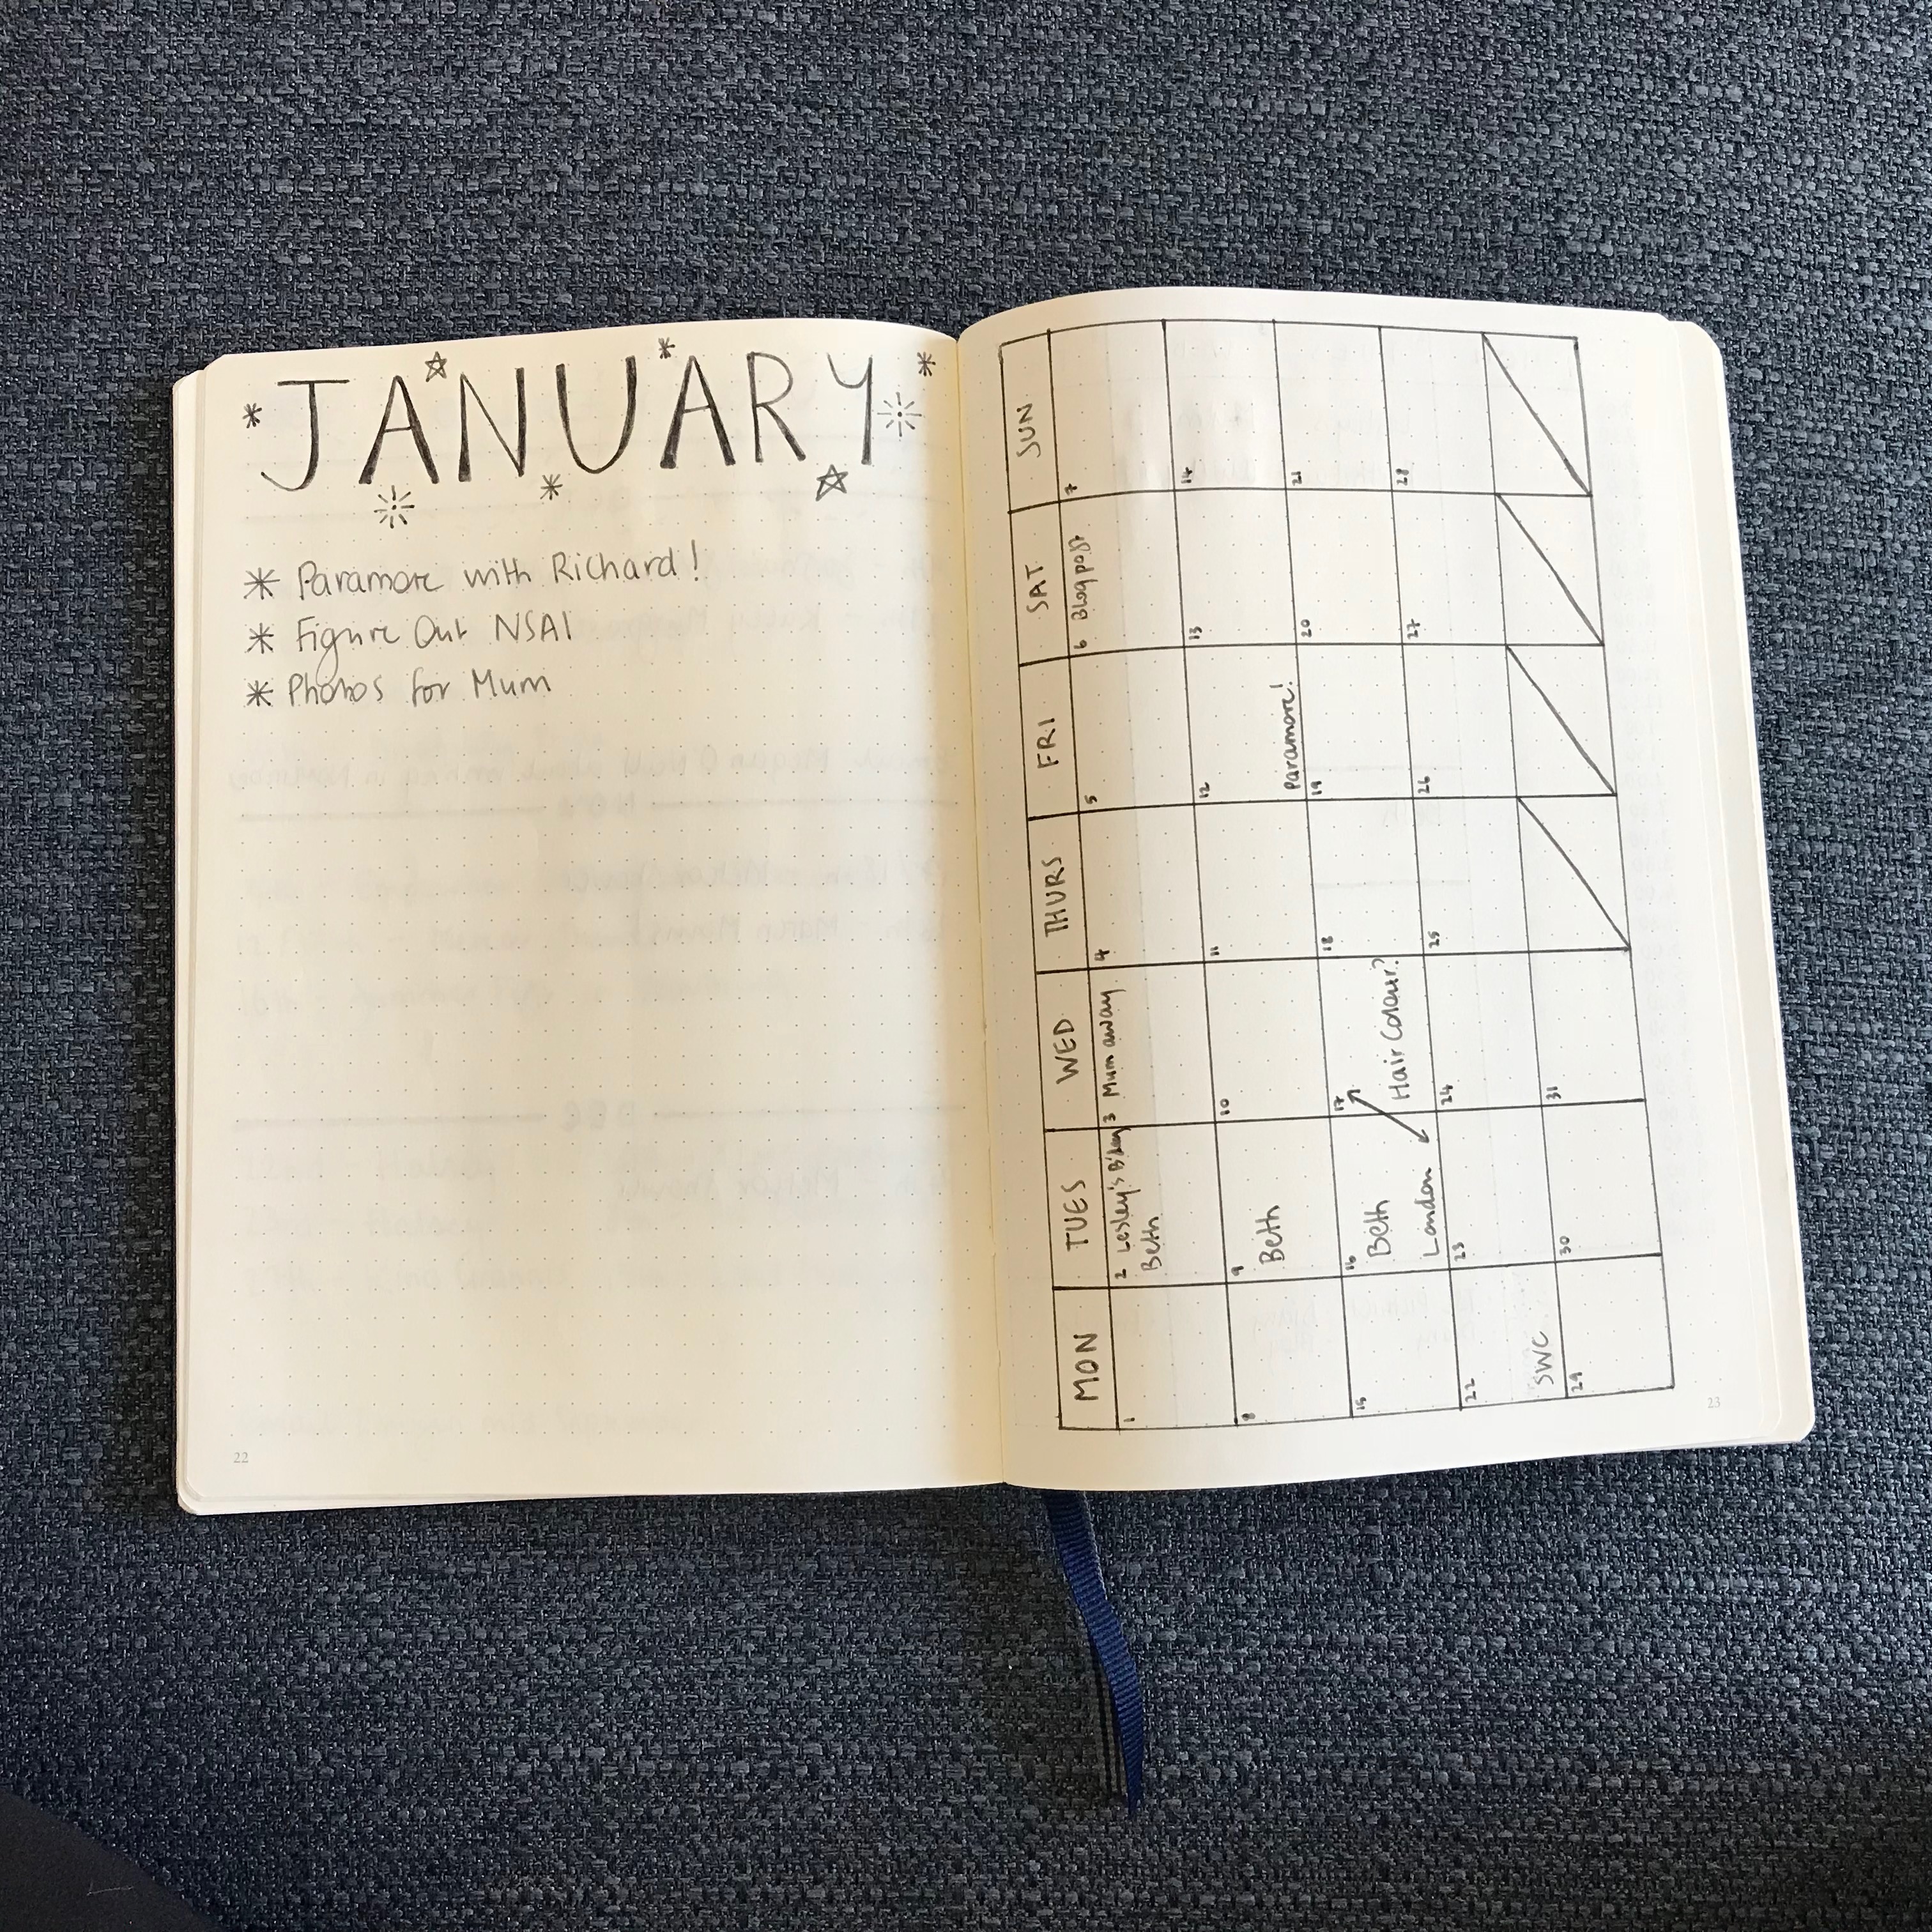 JANUARY
* Paramore with Richard!
* Figure Out NSAI
* Photos for Mum
22
MON TUES WED THURS FRI SAT SUN
1 2 Lesley's B'day 3 Mum away 4 5 6 Blog post 7
Beth
8 9 10 11 12 13 14
Beth
Paramore!
15 16 17 18 19 20 21
Beth
Hair Colour?
London
22 23 24 25 26 27 28
SWC
29 30 31
23